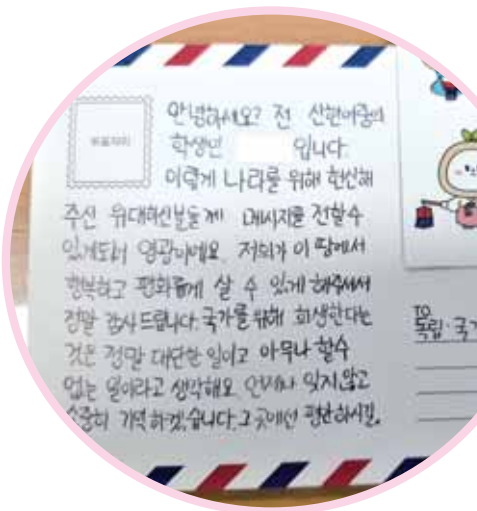 우표자리
안녕하세요? 전 산현여중의
학생인 입니다.
이렇게 나라를 위해 헌신해
주신 위대하신분들께 메시지를 전할수
있게되어 영광이에요. 저희가 이 땅에서
행복하고 평화롭게 살 수 있게 해주셔서
정말 감사드립니다. 국가를 위해 희생한다는
것은 정말 대단한 일이고 아무나 할수
없는 일이라고 생각해요. 언제나 잊지않고
소중히 기억하겠습니다. 그곳에선 평안하시길.
TO
독립·국가